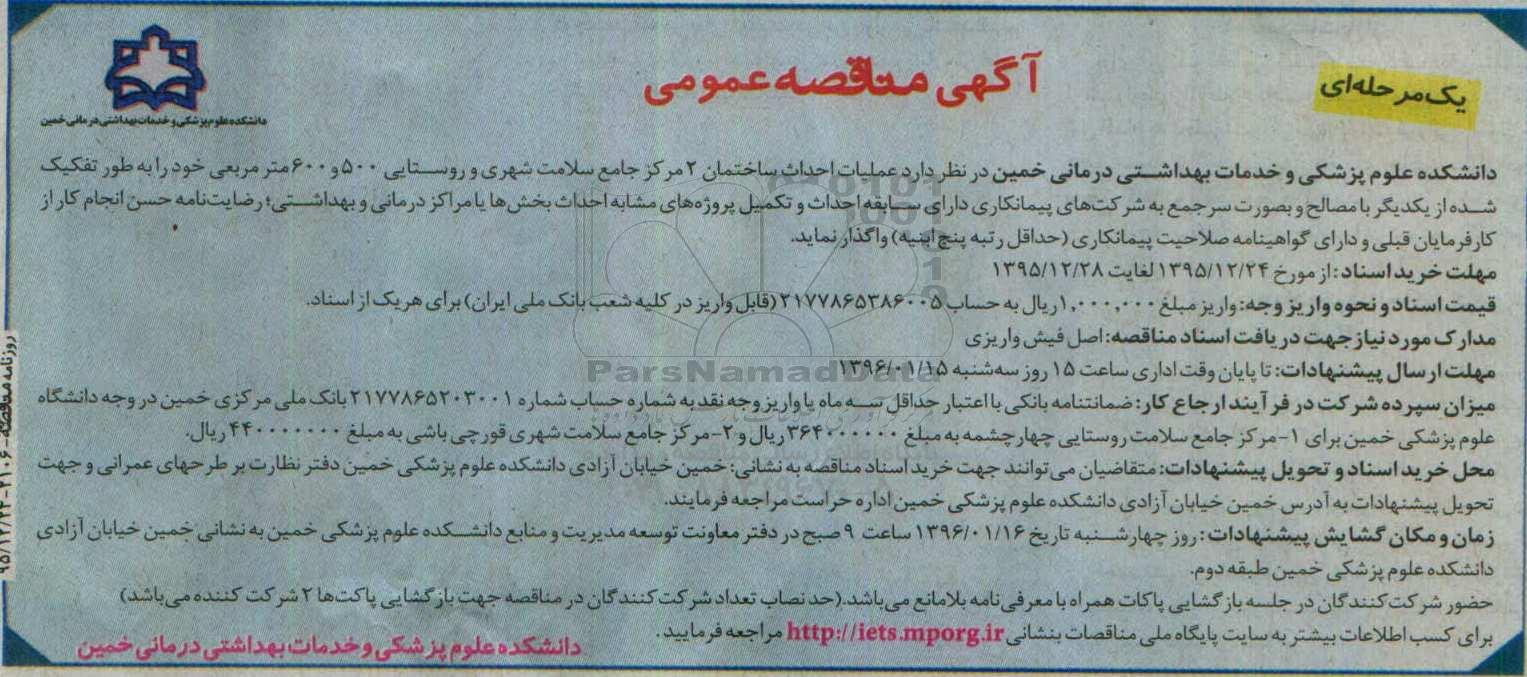 یک‌مرحله‌ای
آگهی مناقصه عمومی
دانشکده علوم پزشکی و خدمات بهداشتی درمانی خمین
دانشکده علوم پزشکی و خدمات بهداشـــتی درمانی خمین در نظر دارد عملیات احداث ساختمان ۲ مرکز جامع سلامت شهری و روســـتایی ۵۰۰ و ۶۰۰ متر مربعی خود را به طور تفکیک
شــده از یکدیگر با مصالح و بصورت سرجمع به شرکت‌های پیمانکاری دارای ســابقه احداث و تکمیل پروژه‌های مشابه احداث بخش‌ها یا مراکز درمانی و بهداشــتی؛ رضایت‌نامه حسن انجام کار از
کارفرمایان قبلی و دارای گواهینامه صلاحیت پیمانکاری (حداقل رتبه پنج ابنیه) واگذار نماید.
مهلت خرید اسناد: از مورخ ۱۳۹۵/۱۲/۲۴ لغایت ۱۳۹۵/۱۲/۲۸
قیمت اسناد و نحوه واریز وجه: واریز مبلغ ۱,۰۰۰,۰۰۰ ریال به حساب ۲۱۷۷۸۶۵۳۸۶۰۰۵ (قابل واریز در کلیه شعب بانک ملی ایران) برای هریک از اسناد.
مدارک مورد نیاز جهت دریافت اسناد مناقصه: اصل فیش واریزی
مهلت ارسال پیشنهادات: تا پایان وقت اداری ساعت ۱۵ روز سه‌شنبه ۱۳۹۶/۰۱/۱۵
میزان سپرده شرکت در فرآیند ارجاع کار: ضمانتنامه بانکی با اعتبار حداقل ســه ماه یا واریز وجه نقد به شماره حساب شماره ۲۱۷۷۸۶۵۲۰۳۰۰۱ بانک ملی مرکزی خمین در وجه دانشگاه
علوم پزشکی خمین برای ۱- مرکز جامع سلامت روستایی چهارچشمه به مبلغ ۳۶۴۰۰۰۰۰۰ ریال و ۲- مرکز جامع سلامت شهری قورچی باشی به مبلغ ۴۴۰۰۰۰۰۰۰ ریال.
محل خرید اسناد و تحویل پیشنهادات: متقاضیان می‌توانند جهت خرید اسناد مناقصه به نشانی: خمین خیابان آزادی دانشکده علوم پزشکی خمین دفتر نظارت بر طرحهای عمرانی و جهت
تحویل پیشنهادات به آدرس خمین خیابان آزادی دانشکده علوم پزشکی خمین اداره حراست مراجعه فرمایند.
زمان و مکان گشایش پیشنهادات: روز چهارشــنبه تاریخ ۱۳۹۶/۰۱/۱۶ ساعت ۹ صبح در دفتر معاونت توسعه مدیریت و منابع دانشــکده علوم پزشکی خمین به نشانی خمین خیابان آزادی
دانشکده علوم پزشکی خمین طبقه دوم.
حضور شرکت‌کنندگان در جلسه بازگشایی پاکات همراه با معرفی‌نامه بلامانع می‌باشد.(حد نصاب تعداد شرکت‌کنندگان در مناقصه جهت بازگشایی پاکت‌ها ۲ شرکت کننده می‌باشد)
برای کسب اطلاعات بیشتر به سایت پایگاه ملی مناقصات بنشانی http://iets.mporg.ir مراجعه فرمایید.
دانشکده علوم پزشکی و خدمات بهداشتی درمانی خمین
ParsNamadData
روزنامه مناقصه